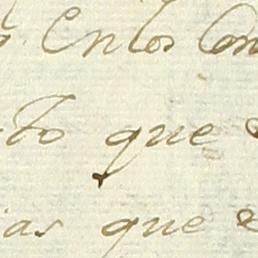 En los Con
to que
ias que